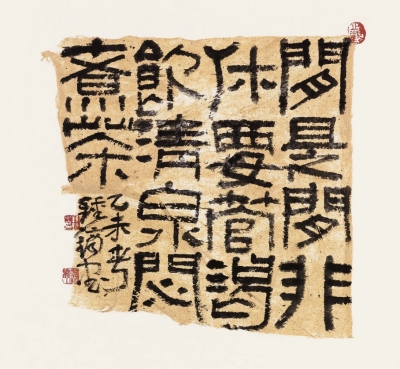 閒是閒非
休要管渴
飲清泉悶
煮茶
乙未春
书